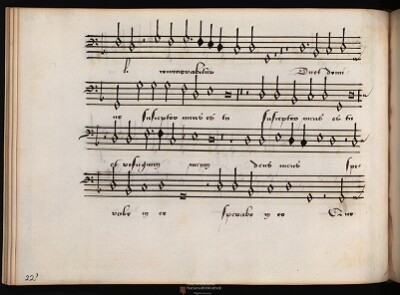 commorabitur Dicet domi
ne susceptor meus es tu susceptor meus es tu
et refugium meum deus meus spe
rabo in eo sperabo in eo Quo